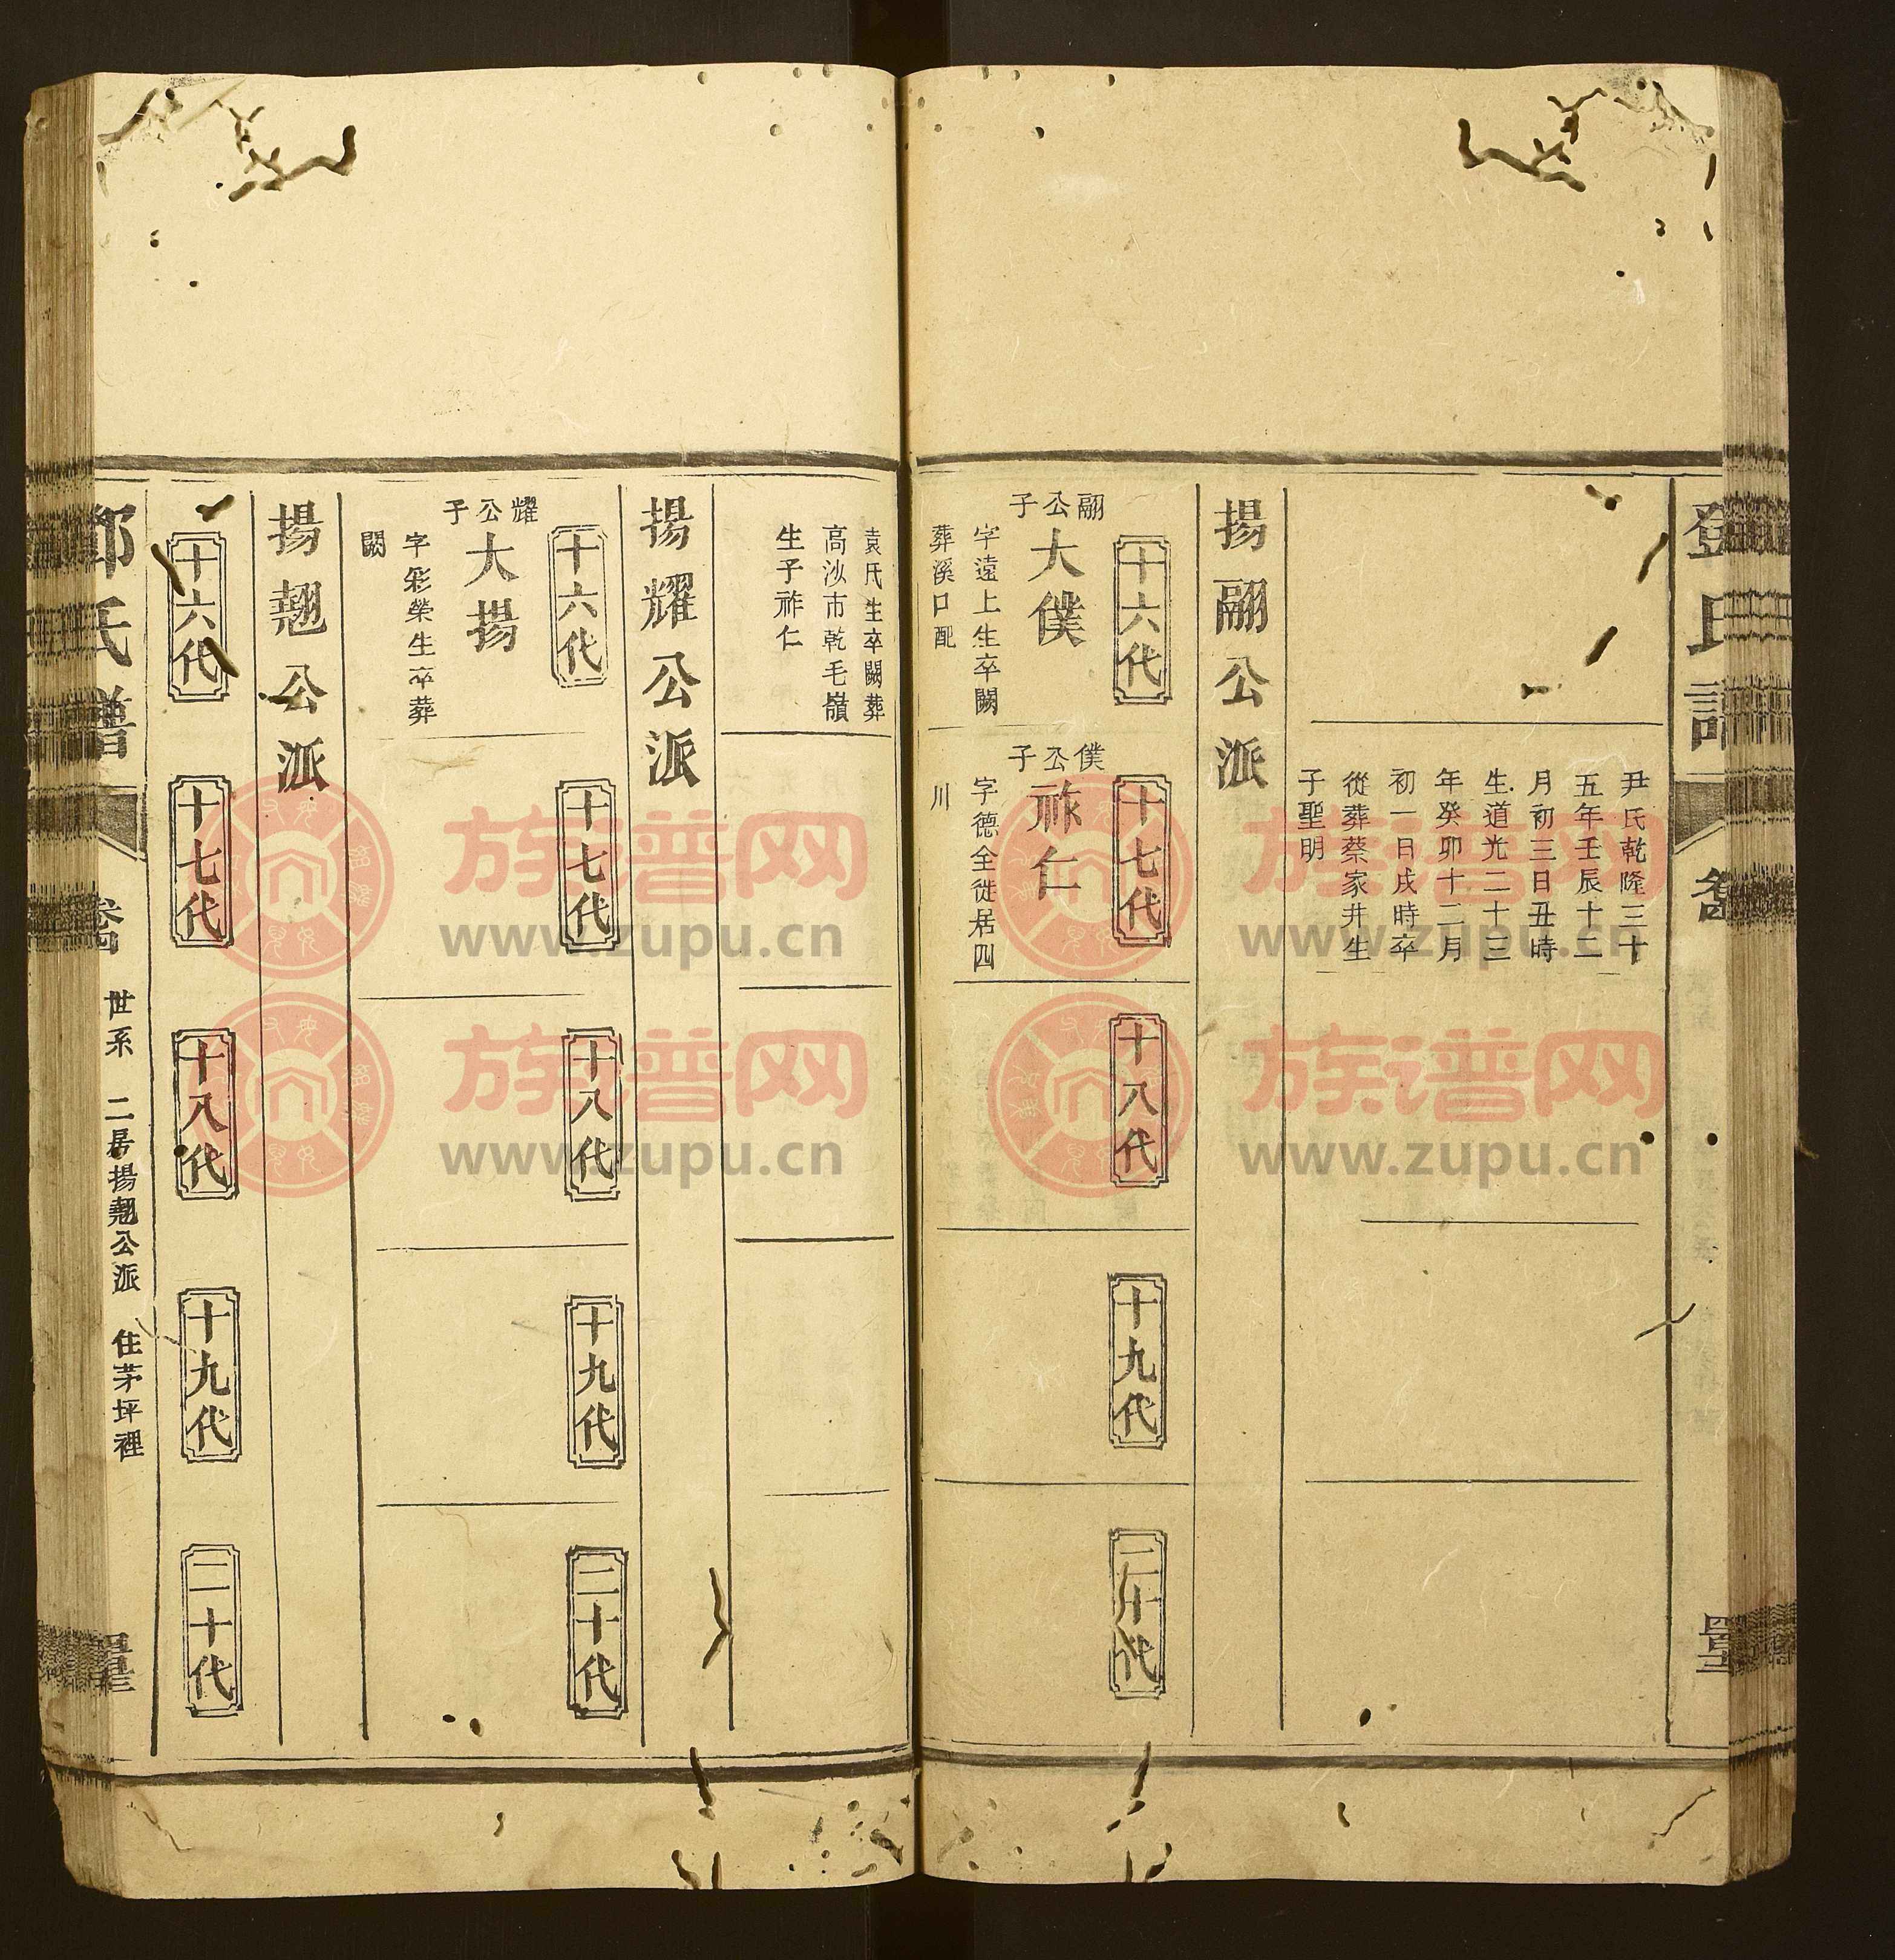 尹氏乾隆三十
五年壬辰十二
月初三日丑時
生道光二十三
年癸卯十二月
初一日戌時卒
從葬蔡家井生
子聖明
揚翮公派
十六代
十七代
十八代
十九代
二十代
翮公子
大僕
字遠上生卒闕
葬溪口配
僕公子
祚仁
字德全徙居四
川
袁氏生卒闕葬
高沙市乾毛嶺
生子祚仁
揚耀公派
十六代
十七代
十八代
十九代
二十代
耀公子
大揚
字彩榮生卒葬
闕
揚翹公派
十六代
十七代
十八代
十九代
二十代
鄧氏譜
世系 二房揚翹公派 住茅坪裡
族谱网
www.zupu.cn
族谱网
www.zupu.cn
族谱网
www.zupu.cn
族谱网
www.zupu.cn